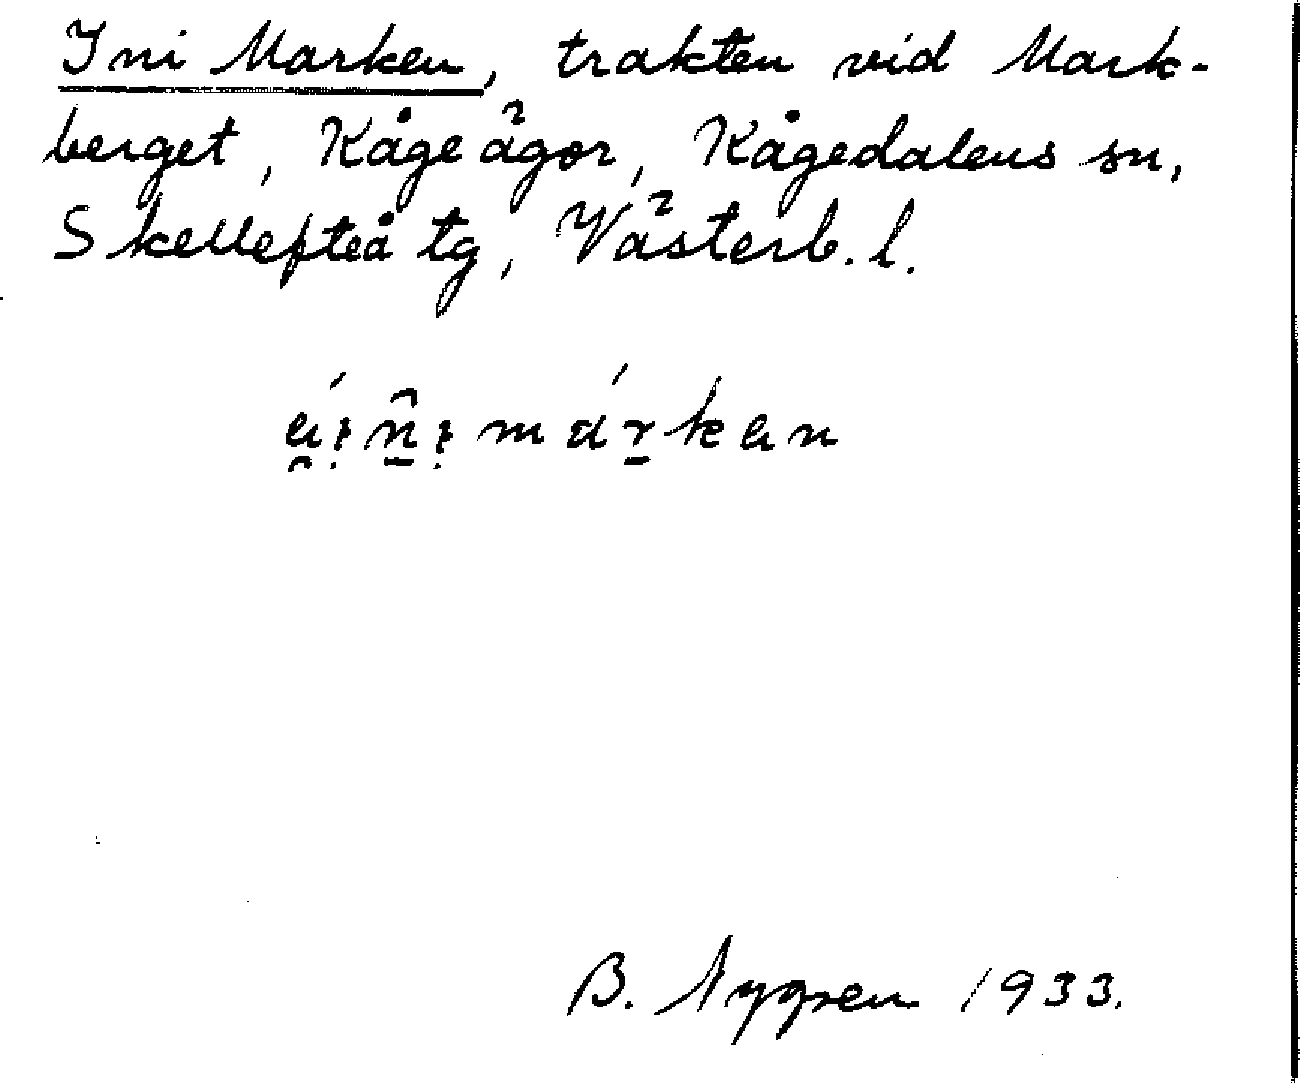 Ini Marken, trakten vid Mark-
berget, Kåge ägor, Kågedalens sn,
Skellefteå tg, Västerb. l.
B. Nygren 1933.